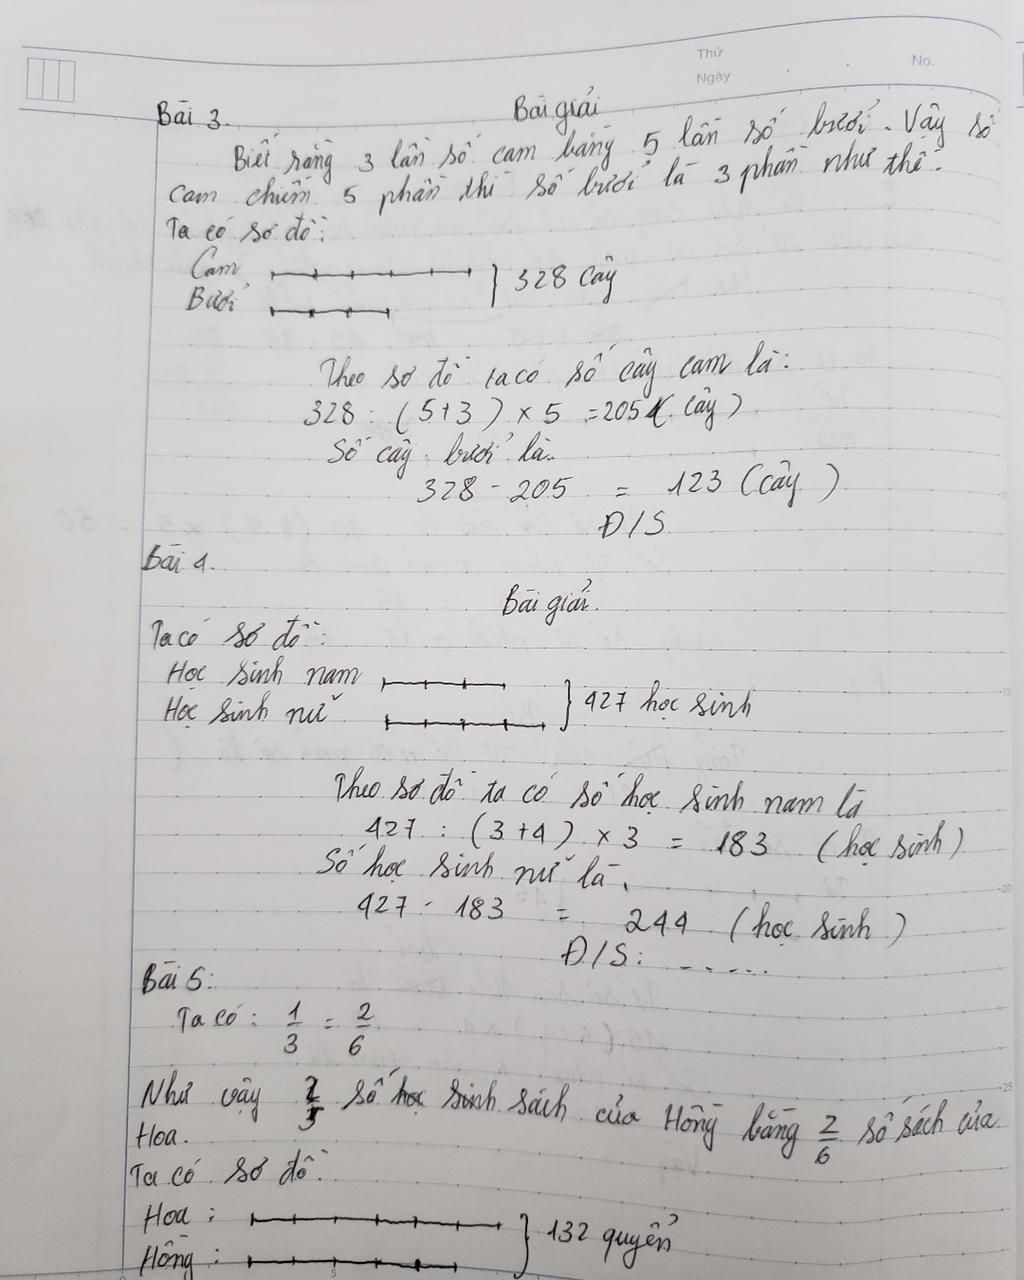 Thứ
Ngày
No.
Bài 3. Bài giải
Biết rằng 3 lần số cam bằng 5 lần số bưởi. Vậy số
cam chiếm 5 phần thì số bưởi là 3 phần như thế.
Ta có sơ đồ:
Cam
Bưởi
328 cây
Theo sơ đồ ta có số cây cam là:
328 : (5+3) × 5 = 205 (cây)
Số cây bưởi là.
328 - 205 = 123 (cây)
Đ/S
Bài 4.
Bài giải.
Ta có sơ đồ:
Học sinh nam
Học sinh nữ
427 học sinh
Theo sơ đồ ta có số học sinh nam là
427 : (3+4) × 3 = 183 (học sinh)
Số học sinh nữ là.
427 - 183 = 244 (học sinh)
Đ/S: ......
Bài 5:
Ta có: 1/3 = 2/6
Như vậy 2/5 số học sinh sách của Hồng bằng 2/6 số sách của
Hoa.
Ta có sơ đồ:
Hoa :
Hồng :
132 quyển